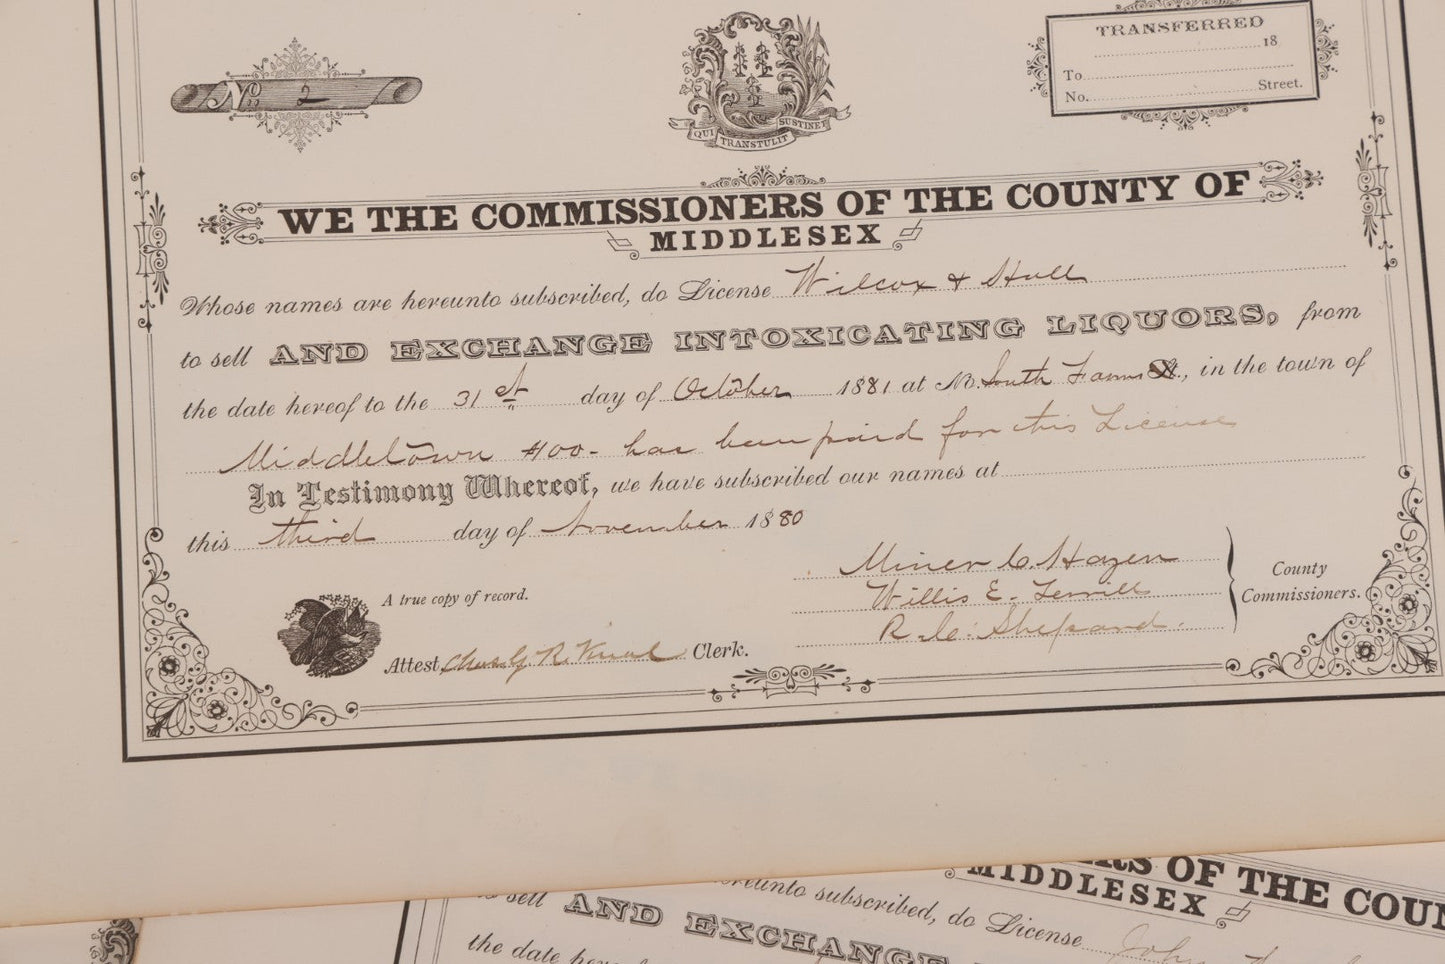 No. 2
QUI TRANSTULIT SUSTINET
TRANSFERRED
18
To
No. Street.
WE THE COMMISSIONERS OF THE COUNTY OF
MIDDLESEX
Whose names are hereunto subscribed, do License Wilcox & Hull
to sell AND EXCHANGE INTOXICATING LIQUORS, from
the date hereof to the 31st day of October 1881 at No. South Farms St., in the town of
Middletown $100- has been paid for this License
In Testimony Whereof, we have subscribed our names at
this third day of November 1880
Miner C. Hazen
Willis E. Terrill
R. C. Shepard.
County
Commissioners.
A true copy of record.
Attest, Chas. G. R. Clerk.
OF THE COUN
MIDDLESEX
hereunto subscribed, do License John
sell AND EXCHANGE
the date